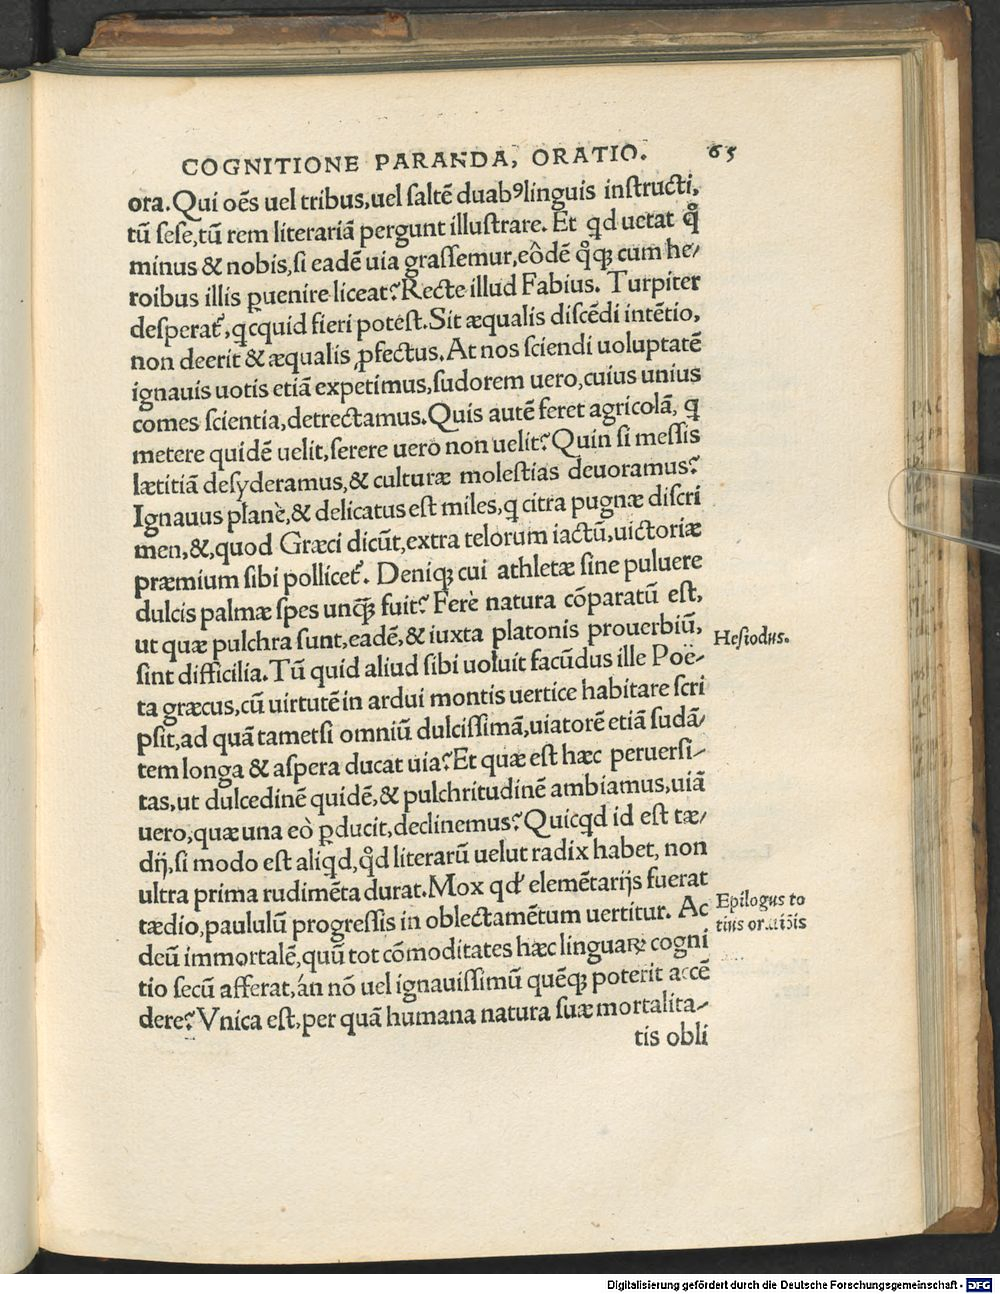 COGNITIONE PARANDA, ORATIO. 65
ora. Qui oēs uel tribus, uel saltē duabꝰ linguis instructi,
tū sese, tū rem literariā pergunt illustrare. Et qd uetat qͦ
minus & nobis, si eadē uia grassemur, eôdē qͦqꝫ cum he/
roibus illis ꝑuenire liceat? Recte illud Fabius. Turpiter
desperat᷑, qcquid fieri potest. Sit æqualis discēdi intētio,
non deerit & æqualis ꝓfectus. At nos sciendi uoluptatē
ignauis uotis etiā expetimus, sudorem uero, cuius unius
comes scientia, detrectamus. Quis autē feret agricolā, q
metere quidē uelit, serere uero non uelit? Quin si messis
lætitiā desyderamus, & culturæ molestias deuoramus?
Ignauus planè, & delicatus est miles, q citra pugnæ discri
men, &, quod Græci dicūt, extra telorum iactū, uictoriæ
præmium sibi pollicet᷑. Deniqꝫ cui athletæ sine puluere
dulcis palmæ spes unq̄ꝫ fuit? Ferè natura cōparatū est,
ut quæ pulchra sunt, eadē, & iuxta platonis prouerbiū,
Hesiodus.
sint difficilia. Tū quid aliud sibi uoluit facūdus ille Poë-
ta græcus, cū uirtutē in ardui montis uertice habitare scri
psit, ad quā tametsi omniū dulcissimā, uiatorē etiā sudā/
tem longa & aspera ducat uia? Et quæ est hæc peruersi-
tas, ut dulcedinē quidē, & pulchritudinē ambiamus, uiā
uero, quæ una eò ꝑducit, declinemus? Quicqd id est tæ/
dij, si modo est aliqd, qͦd literarū uelut radix habet, non
ultra prima rudimēta durat. Mox qd' elemētarijs fuerat
tædio, paululū progressis in oblectamētum uertitur. Ac
Epilogus to
tius oratiōis
deū immortalē, quū tot cōmoditates hæc linguaꝝ cogni
tio secū afferat, án nō uel ignauissimū quēqꝫ poterit accē
dere? Vnica est, per quā humana natura suæ mortalita-
tis obli
Digitalisierung gefördert durch die Deutsche Forschungsgemeinschaft - DFG